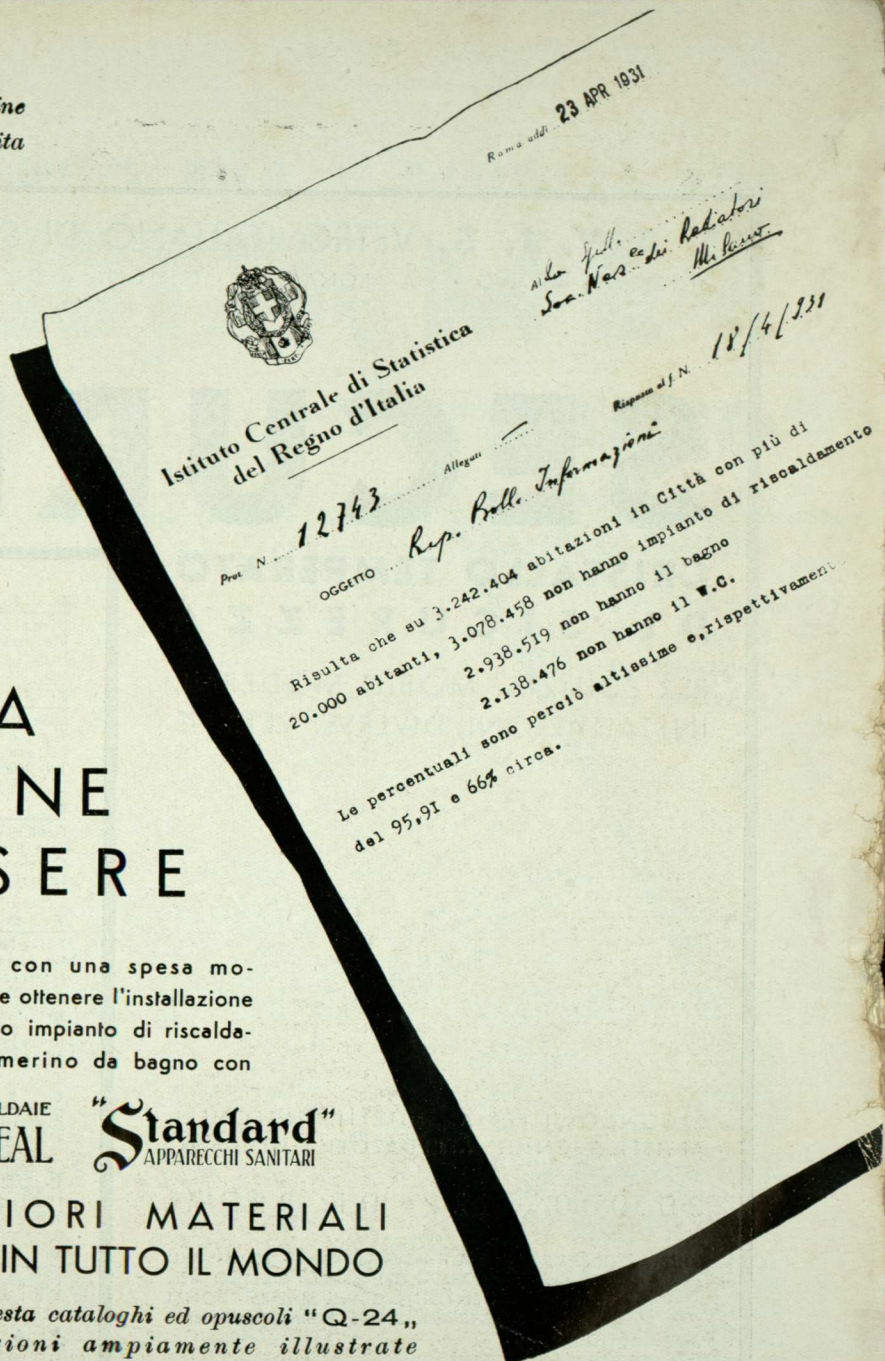 ne
ita
Roma addì 23 APR 1931
Alla Spett.
Soc. Naz. dei Radiatori
Milano
Istituto Centrale di Statistica
del Regno d'Italia
Risposta al f. N. 18/4/931
Prot. N. 12743 Allegati
OGGETTO Rep. Boll. Informazioni
Risulta che su 3.242.404 abitazioni in Città con più di
20.000 abitanti, 3.078.458 non hanno impianto di riscaldamento
2.938.519 non hanno il bagno
2.I38.476 non hanno il W.C.
Le percentuali sono perciò altissime e,rispettivament
del 95,9I e 66% circa.
A
NE
SERE
con una spesa mo-
e ottenere l'installazione
o impianto di riscalda-
merino da bagno con
LDAIE
EAL
"Standard"
APPARECCHI SANITARI
IORI MATERIALI
IN TUTTO IL MONDO
esta cataloghi ed opuscoli "Q-24„
ioni ampiamente illustrate